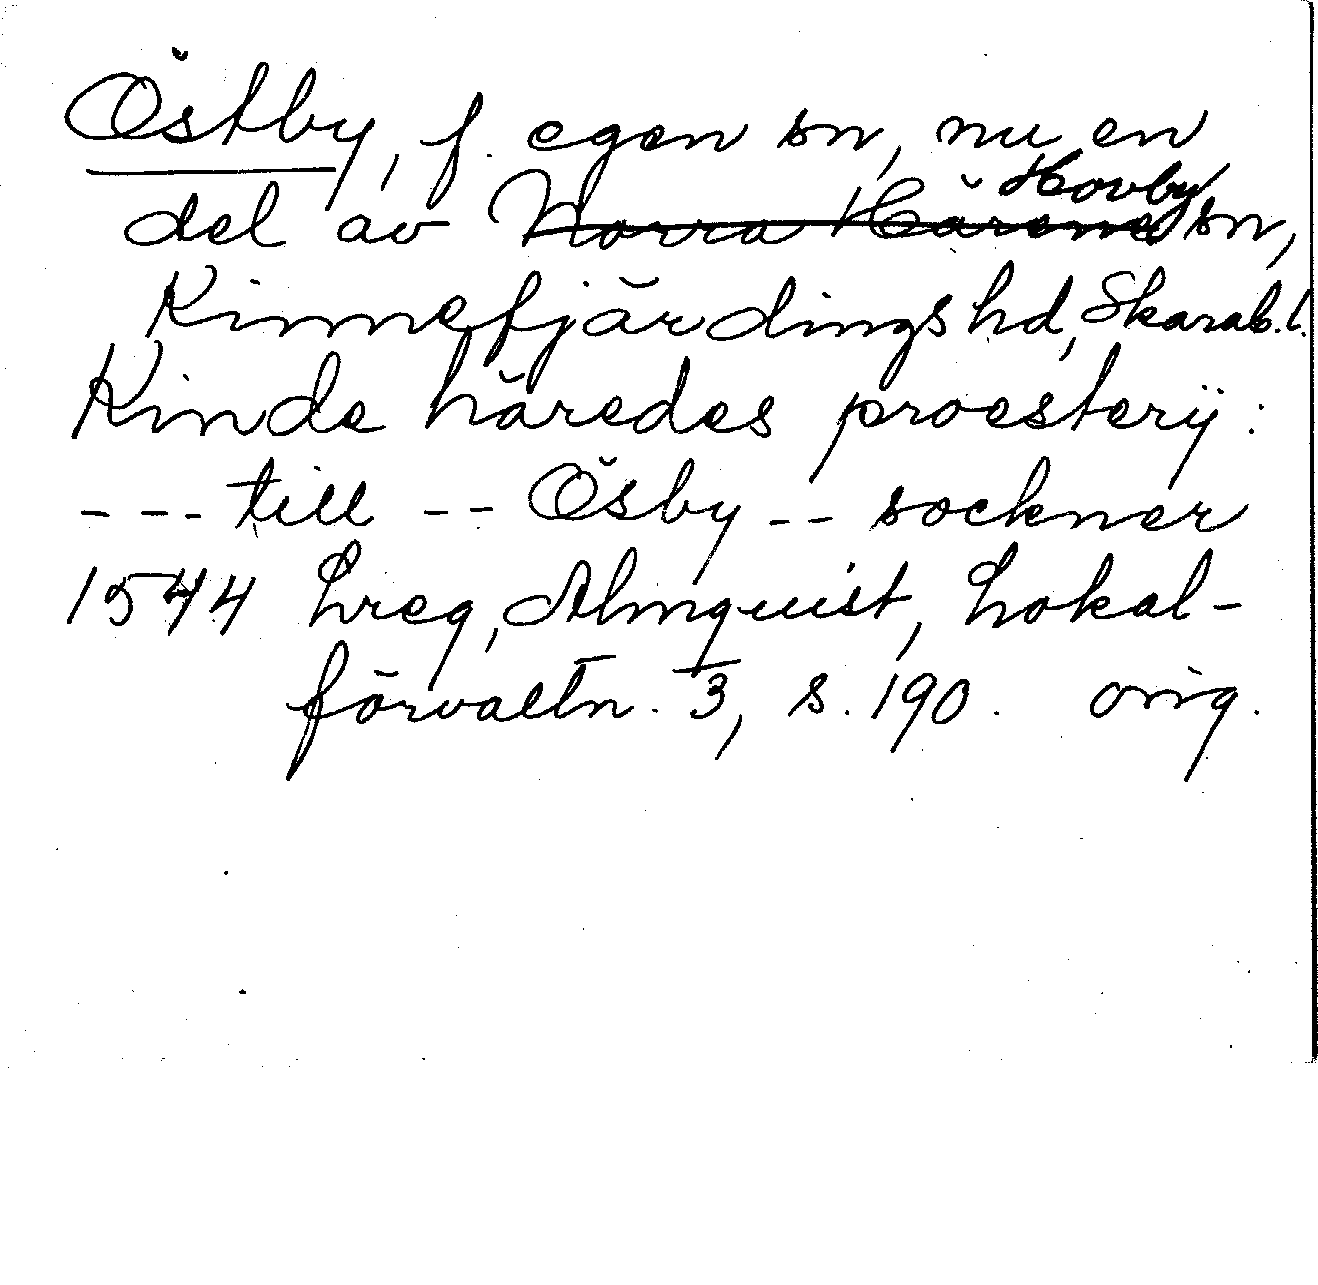 Östby, f. egen sn, nu en
del av Norra Härene Hovby sn,
Kinnefjärdings hd, Skarab. l.
Kinde häredes proesterij:
--- till -- Ösby -- sockner
1544 Lreg, Almquist, Lokal-
förvaltn. 3, s. 190. orig.